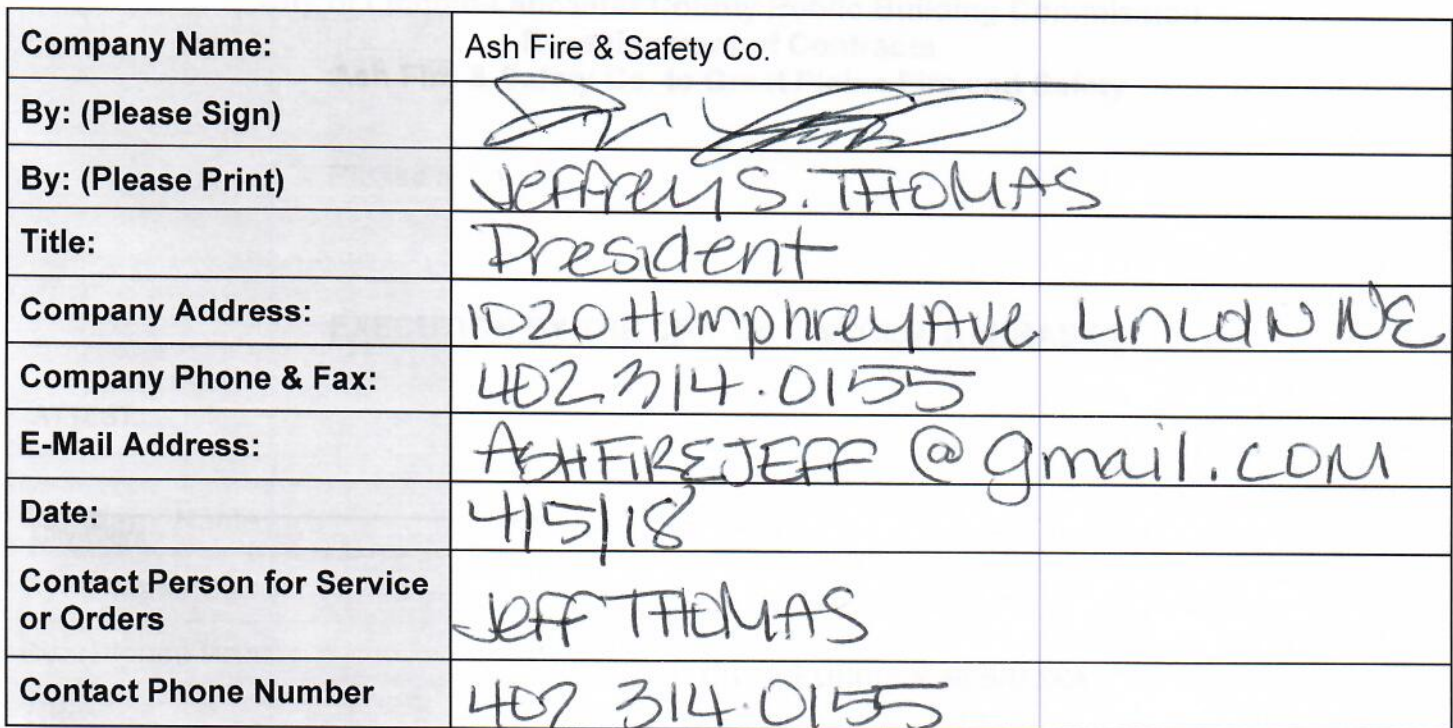 Company Name: Ash Fire & Safety Co.
By: (Please Sign)
By: (Please Print) Jeffrey S. THOMAS
Title: President
Company Address: 1020 Humphrey Ave LINLON NE
Company Phone & Fax: 402 314.0155
E-Mail Address: ASHFIREJEFF @ gmail.com
Date: 4/5/18
Contact Person for Service
or Orders Jeff THOMAS
Contact Phone Number 402 314.0155